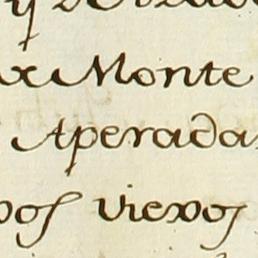 y
ax Monte
Aperada
vos viexos